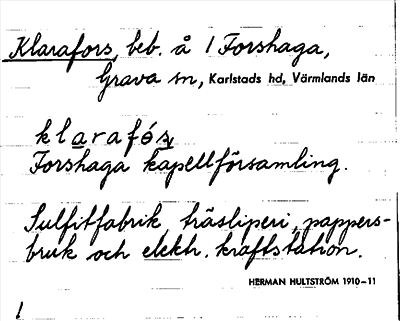 Klarafors, beb. å 1 Forshaga,
Grava sn, Karlstads hd, Värmlands län
klarafo´s
Forshaga kapellförsamling.
Sulfitfabrik, träsliperi, pappers-
bruk och elekh. kraftstation.
HERMAN HULTSTRÖM 1910-11